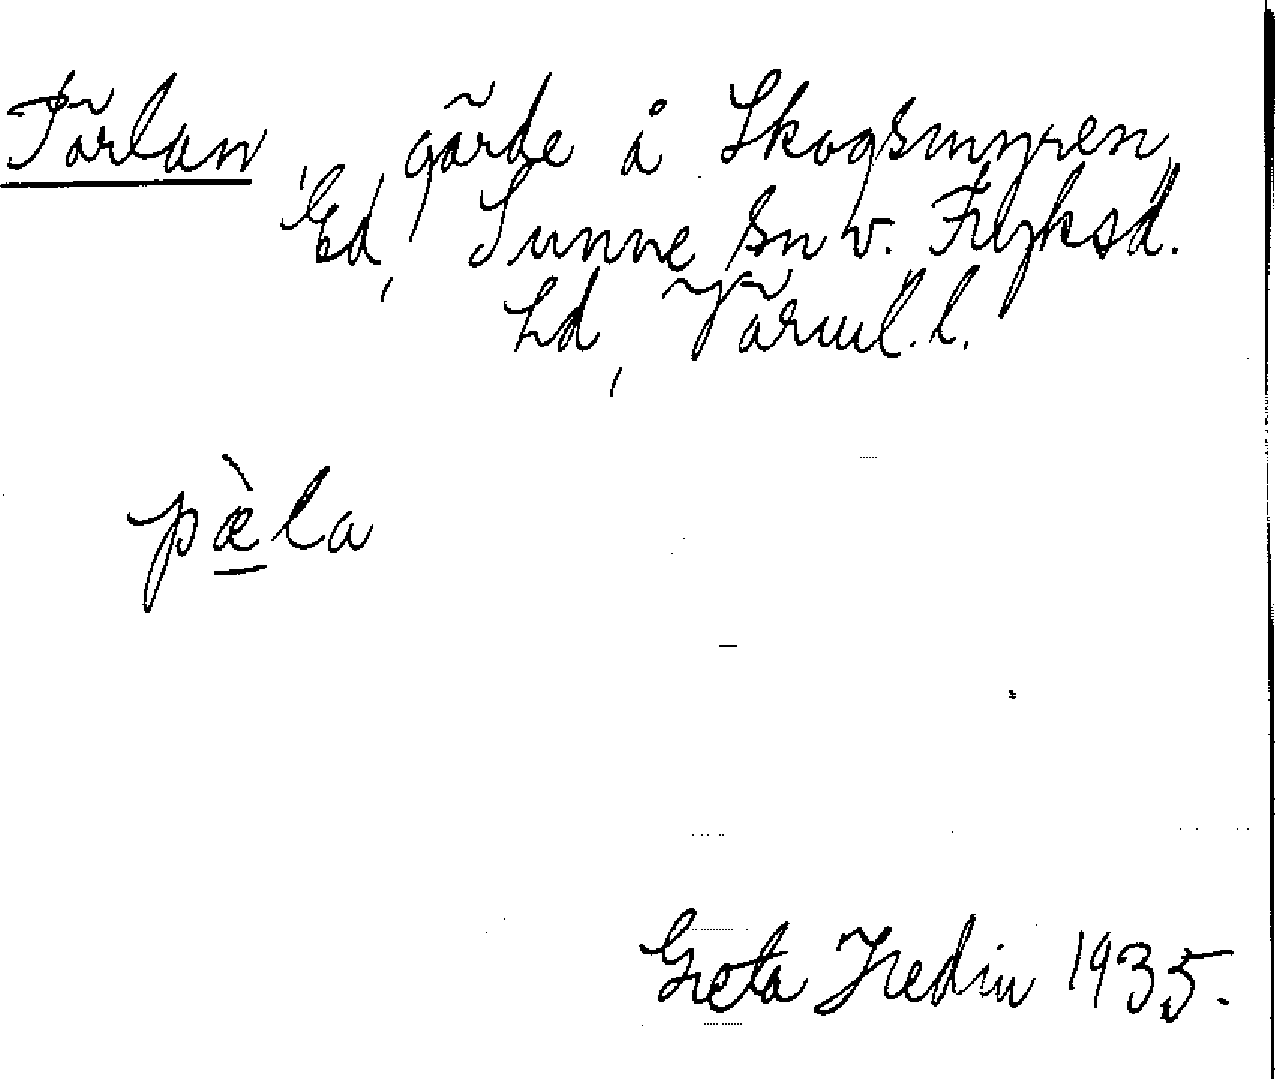 Pärlan, gärde å Skogsmyren,
Ed, Sunne sn v. Fryksd.
hd, Värml. l.
pæ̀la
Greta Hedin 1935.